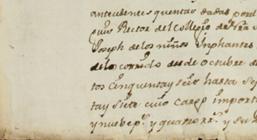 antecedentes quentas dadas por el
Rector del Collegio de
Joseph de los niños Inphantes
de lo corrido desde octubre de
tos Cinquenta y seis hasta
tay siete cuio cargo importa
y nuebe ps. y quatro rrs. y su